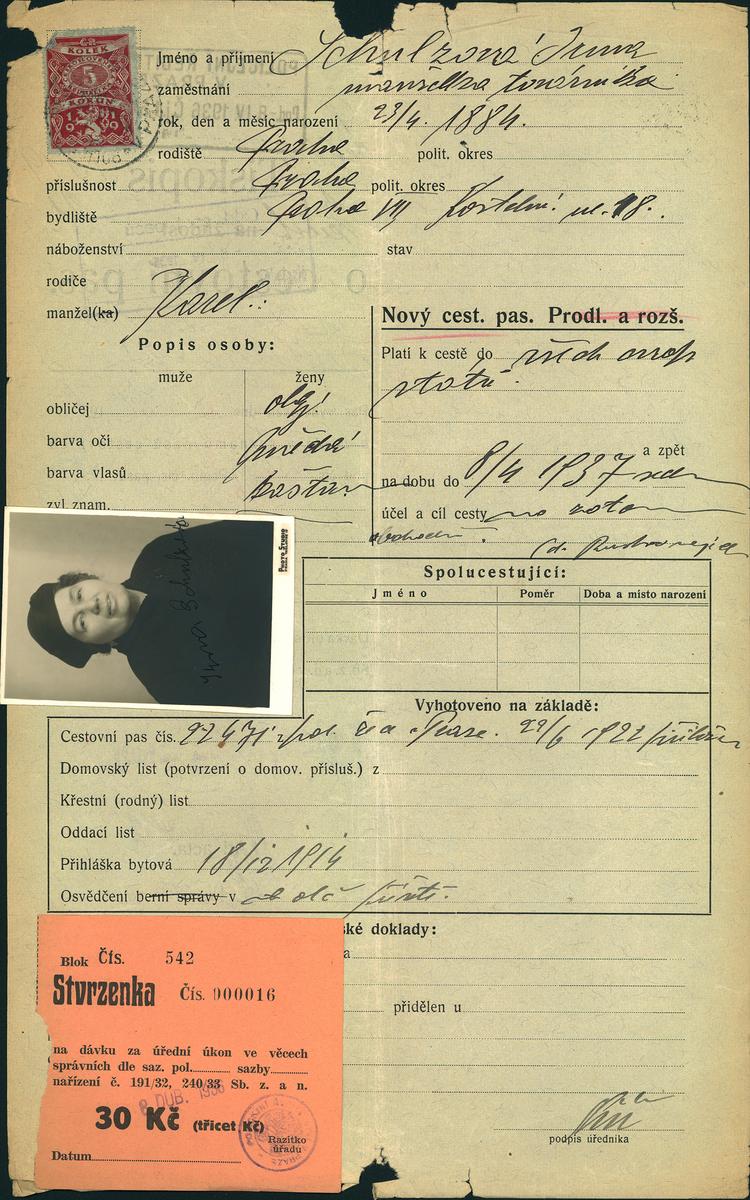 KOLEK
5
KORUN
1919
Jméno a příjmení Schulzová Irma
zaměstnání manželka továrníka
rok, den a měsíc narození 23/4. 1884.
rodiště Praha polit. okres
příslušnost Praha polit. okres
bydliště Praha VII ul. 18.
náboženství stav
rodiče
manžel(ka) Karel
Nový cest. pas. Prodl. a rozš.
Popis osoby:
Platí k cestě do všech evrop.
států.
muže ženy
obličej
barva očí hnědá
barva vlasů kaštan.
zvl. znam.
a zpět
na dobu do 8/4 1937
účel a cíl cesty
obchodní
PHOTO STUDIO
Irma Schulzová
Spolucestující:
Jméno Poměr Doba a místo narození
Vyhotoveno na základě:
Cestovní pas čís. pol. Praze. 22/6 1922
Domovský list (potvrzení o domov. přísluš.) z
Křestní (rodný) list
Oddací list
Přihláška bytová 18/12 1914
Osvědčení berní správy v
ké doklady:
a
přidělen u
podpis úředníka
Blok Čís. 542
Stvrzenka Čís. 000016
na dávku za úřední úkon ve věcech
správních dle saz. pol. sazby
nařízení č. 191/32, 240/33 Sb. z. a n.
8 DUB. 1936
30 Kč (třicet Kč)
Razítko
úřadu
Datum